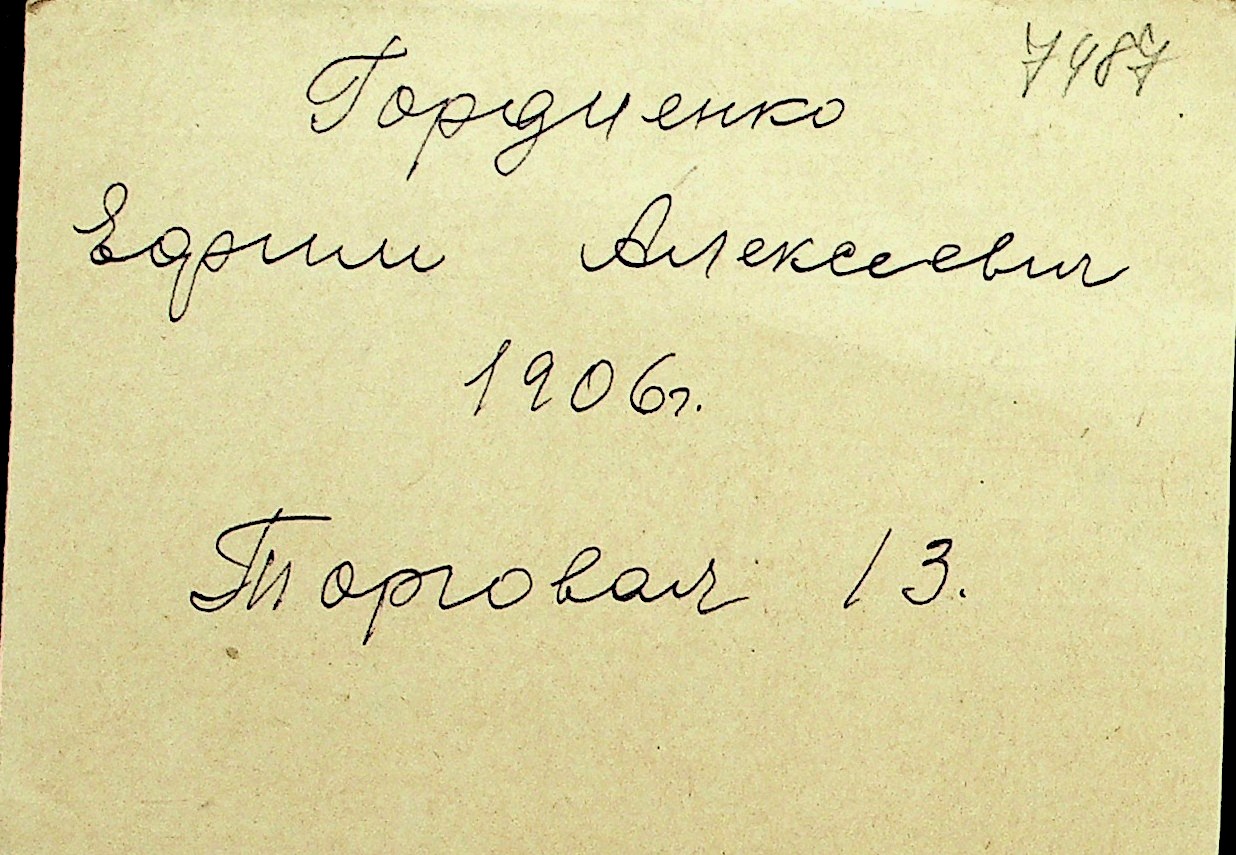 7487
Гордиенко
Ефим Алексеевич
1906г.
Торговая 13.